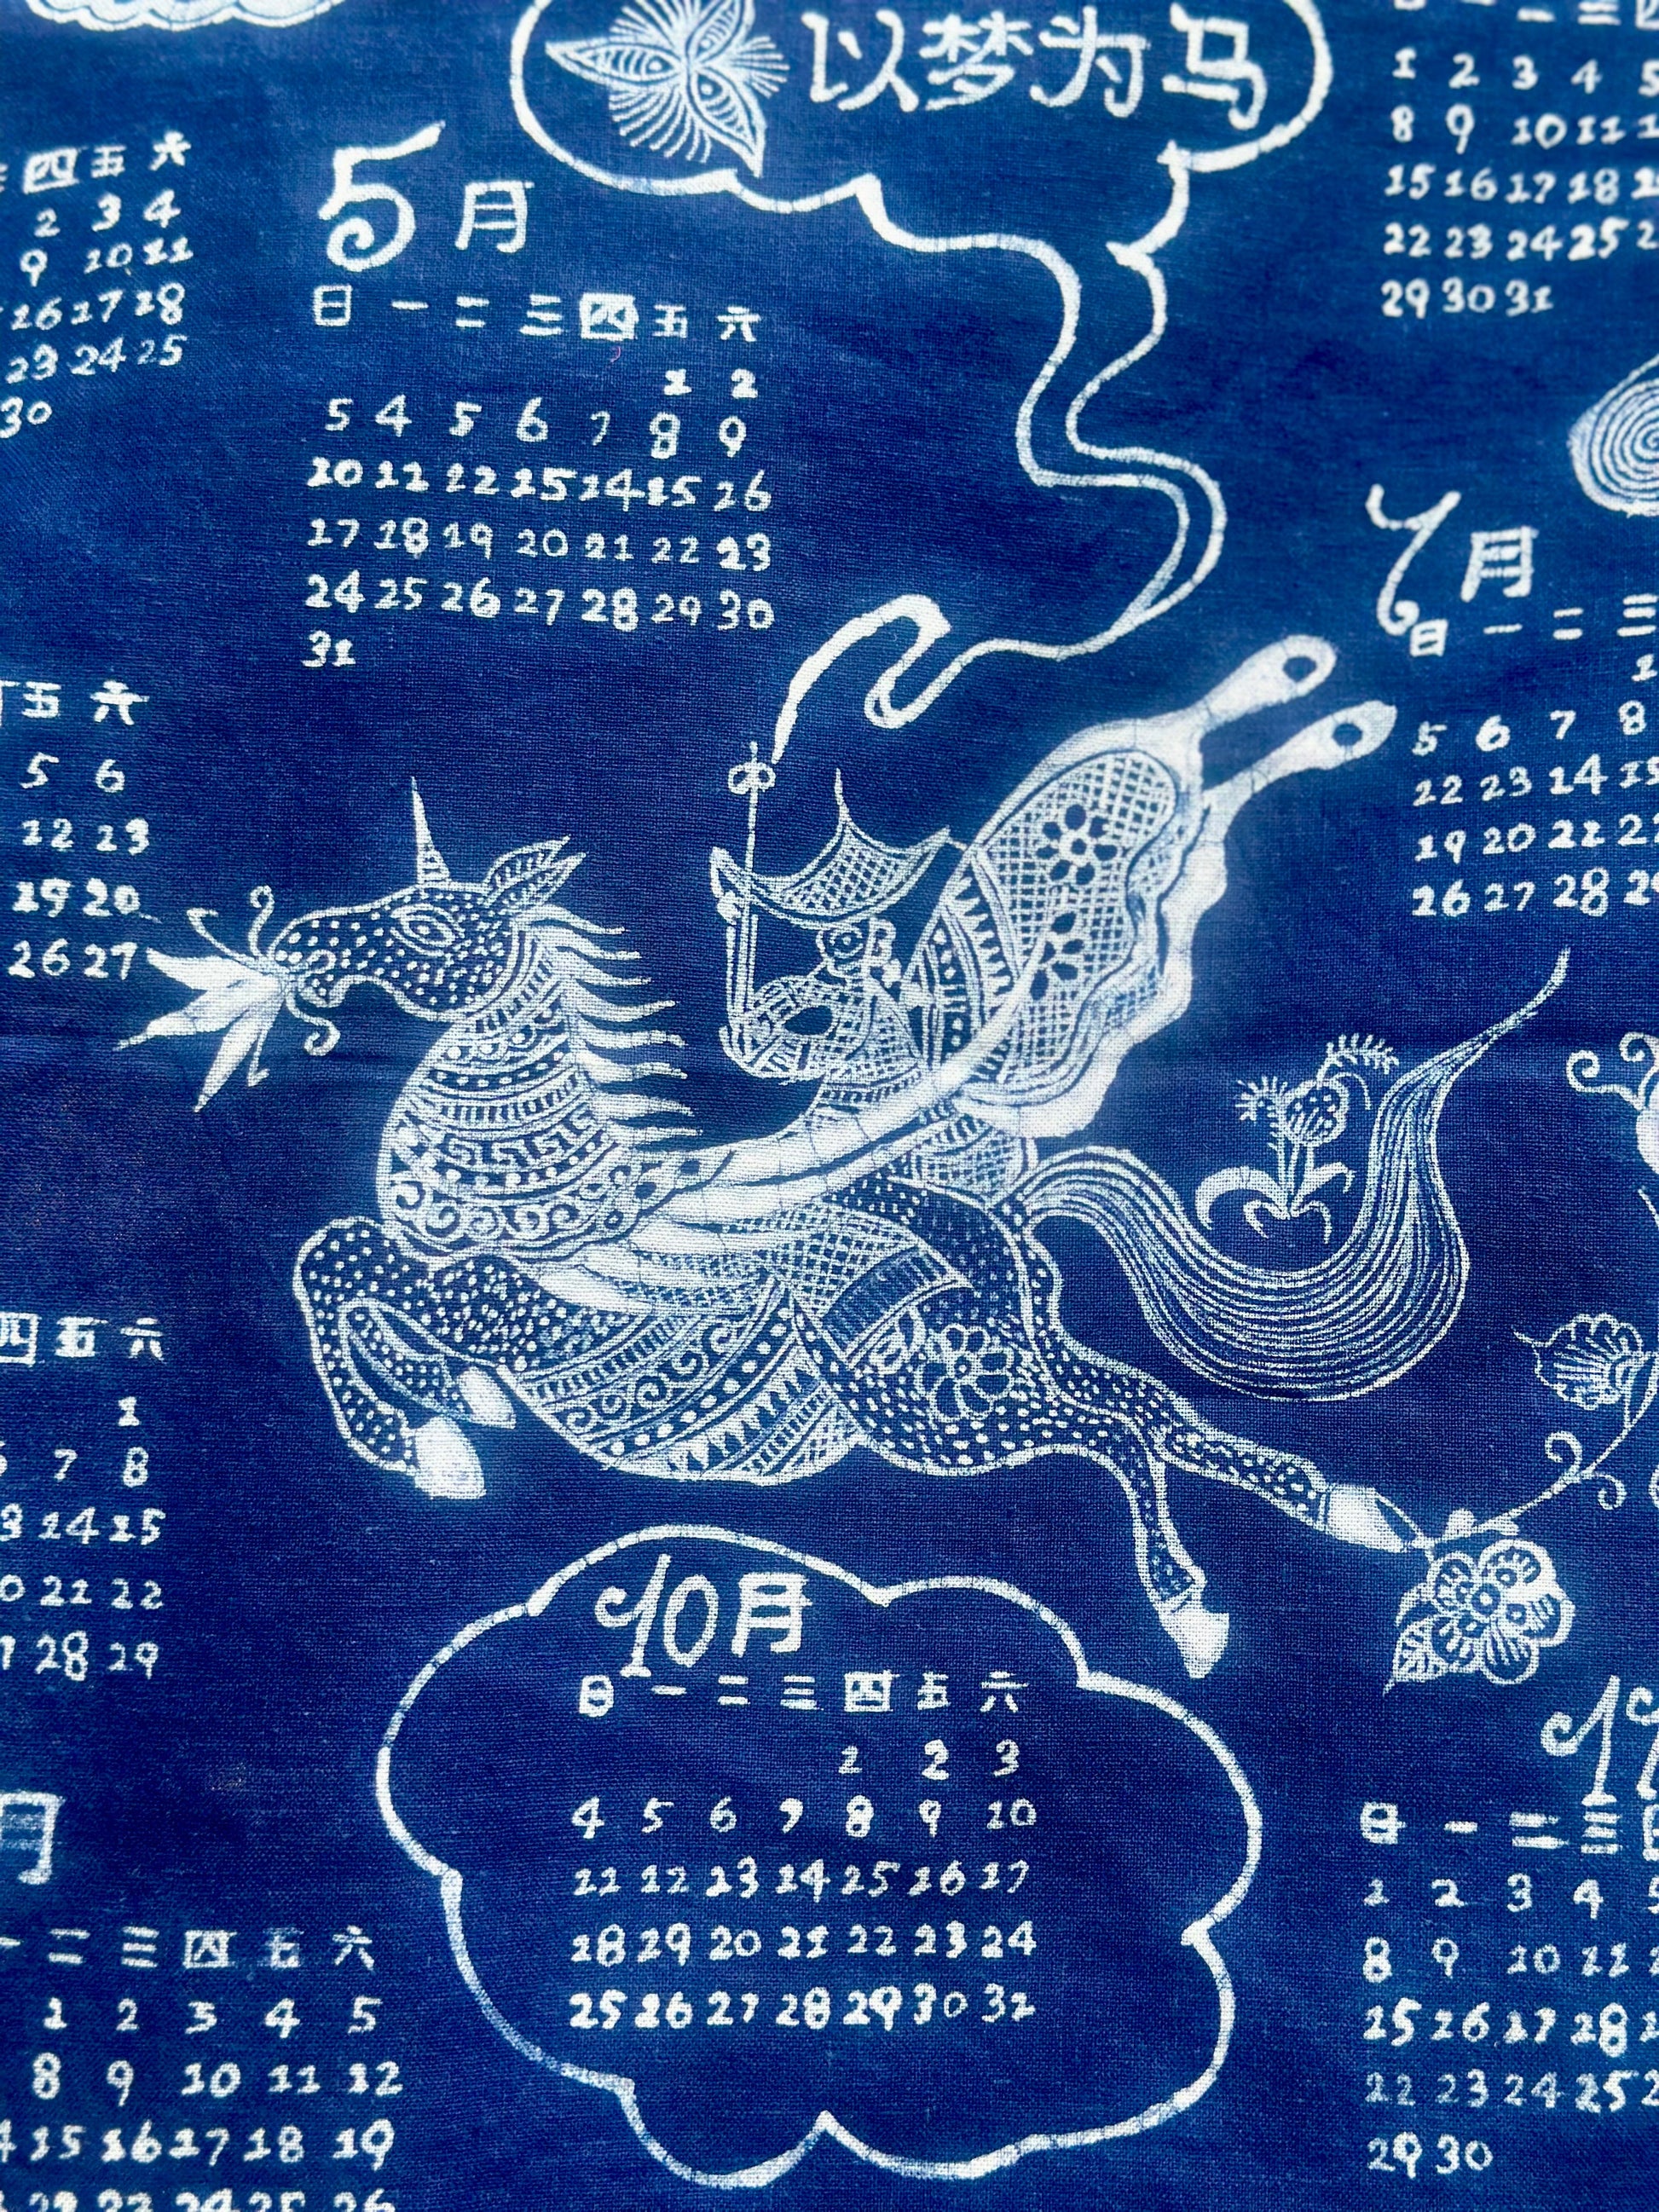 以梦为马
四 五 六
2 3 4
9 10 11
16 17 18
23 24 25
30
5月
日 一 二 三 四 五 六
1 2
5 4 5 6 7 8 9
10 11 12 15 14 15 16
17 18 19 20 21 22 23
24 25 26 27 28 29 30
31
1 2 3 4 5
8 9 10 11
15 16 17 18
22 23 24 25
29 30 31
7月
日 一 二 三
1
5 6 7 8
12 13 14 15
19 20 21 22
26 27 28 29
五 六
5 6
12 13
19 20
26 27
四 五 六
1
7 8
14 15
21 22
28 29
10月
日 一 二 三 四 五 六
1 2 3
4 5 6 7 8 9 10
11 12 13 14 15 16 17
18 19 20 21 22 23 24
25 26 27 28 29 30 31
月
一 二 三 四 五 六
1 2 3 4 5
8 9 10 11 12
15 16 17 18 19
22 23 24 25 26
日 一 二 三
1 2 3 4 5
8 9 10 11
15 16 17 18
22 23 24 25
29 30